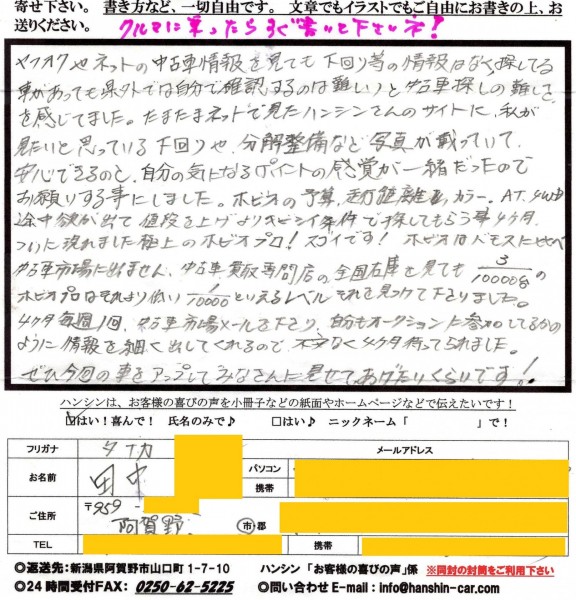 寄せ下さい。 書き方など、一切自由です。 文章でもイラストでもご自由にお書きの上、お
送りください。 クルマに乗ったらすぐ書いて下さいネ!
ヤフオクやネットの中古車情報を見ても下回り等の情報はなく探してる
車があっても県外では自分で確認するのは難しいと中古車探しの難しさ
を感じてました。たまたまネットで見たハンシンさんのサイトに、私が
見たいと思っている下回りや、分解整備など写真が載っていて、
安心できるのと、自分の気になるポイントの感覚が一緒だったので
お願いする事にしました。ホビオの予算、走行距離、カラー。AT、4WD
途中欲が出て値段を上げよりキビシイ条件で探してもらう事4ヶ月。
ついに現れました極上のホビオプロ!スゴイです! ホビオはバモスに比べ
中古車市場に出ません、中古車買取専門店の全国在庫を見ても 3/10000台の
ホビオプロはそれより低い 1/10000といえるレベル それを見つけて下りました。
4ヶ月毎週1回、中古車市場メールを下さり、自分もオークションに参加してるかの
ように情報を細く出してくれるので、不安なく4ヶ月待ってられました。
ぜひ今回の車をアップしてみなさんに見せてあげたいくらいです!
ハンシンは、お客様の喜びの声を小冊子などの紙面やホームページなどで伝えたいです!
☑はい!喜んで! 氏名のみで♪ □はい♪ ニックネーム「 」で!
フリガナ タナカ メールアドレス
お名前 田中 パソコン
携帯
ご住所 〒959-
阿賀野 市 郡
TEL 携帯
◎返送先:新潟県阿賀野市山口町1-7-10 ハンシン「お客様の喜びの声」係 ※同封の封筒をご利用下さい
◎24時間受付FAX: 0250-62-5225 ◎問い合わせE-mail:info@hanshin-car.com